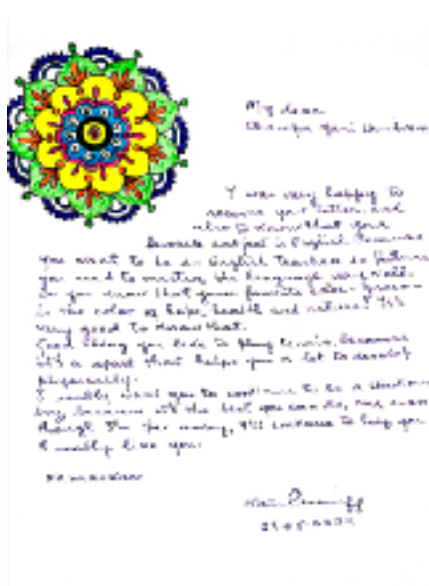 My dear
I was very happy to
receive your letter, and
also to know that your
favorite subject is English. Because
you want to be an English Teacher in future
you need to the language very well.
Do you know that your favorite color - green -
is the color of hope, health and nature? It's
very good to know that.
Good thing you like to play tennis, because
it's a sport that helps you a lot to develop
physically.
I really want you to continue to be a
boy because it's the best you can do, and even
though I'm far away, I'll continue to help you
I really like you.